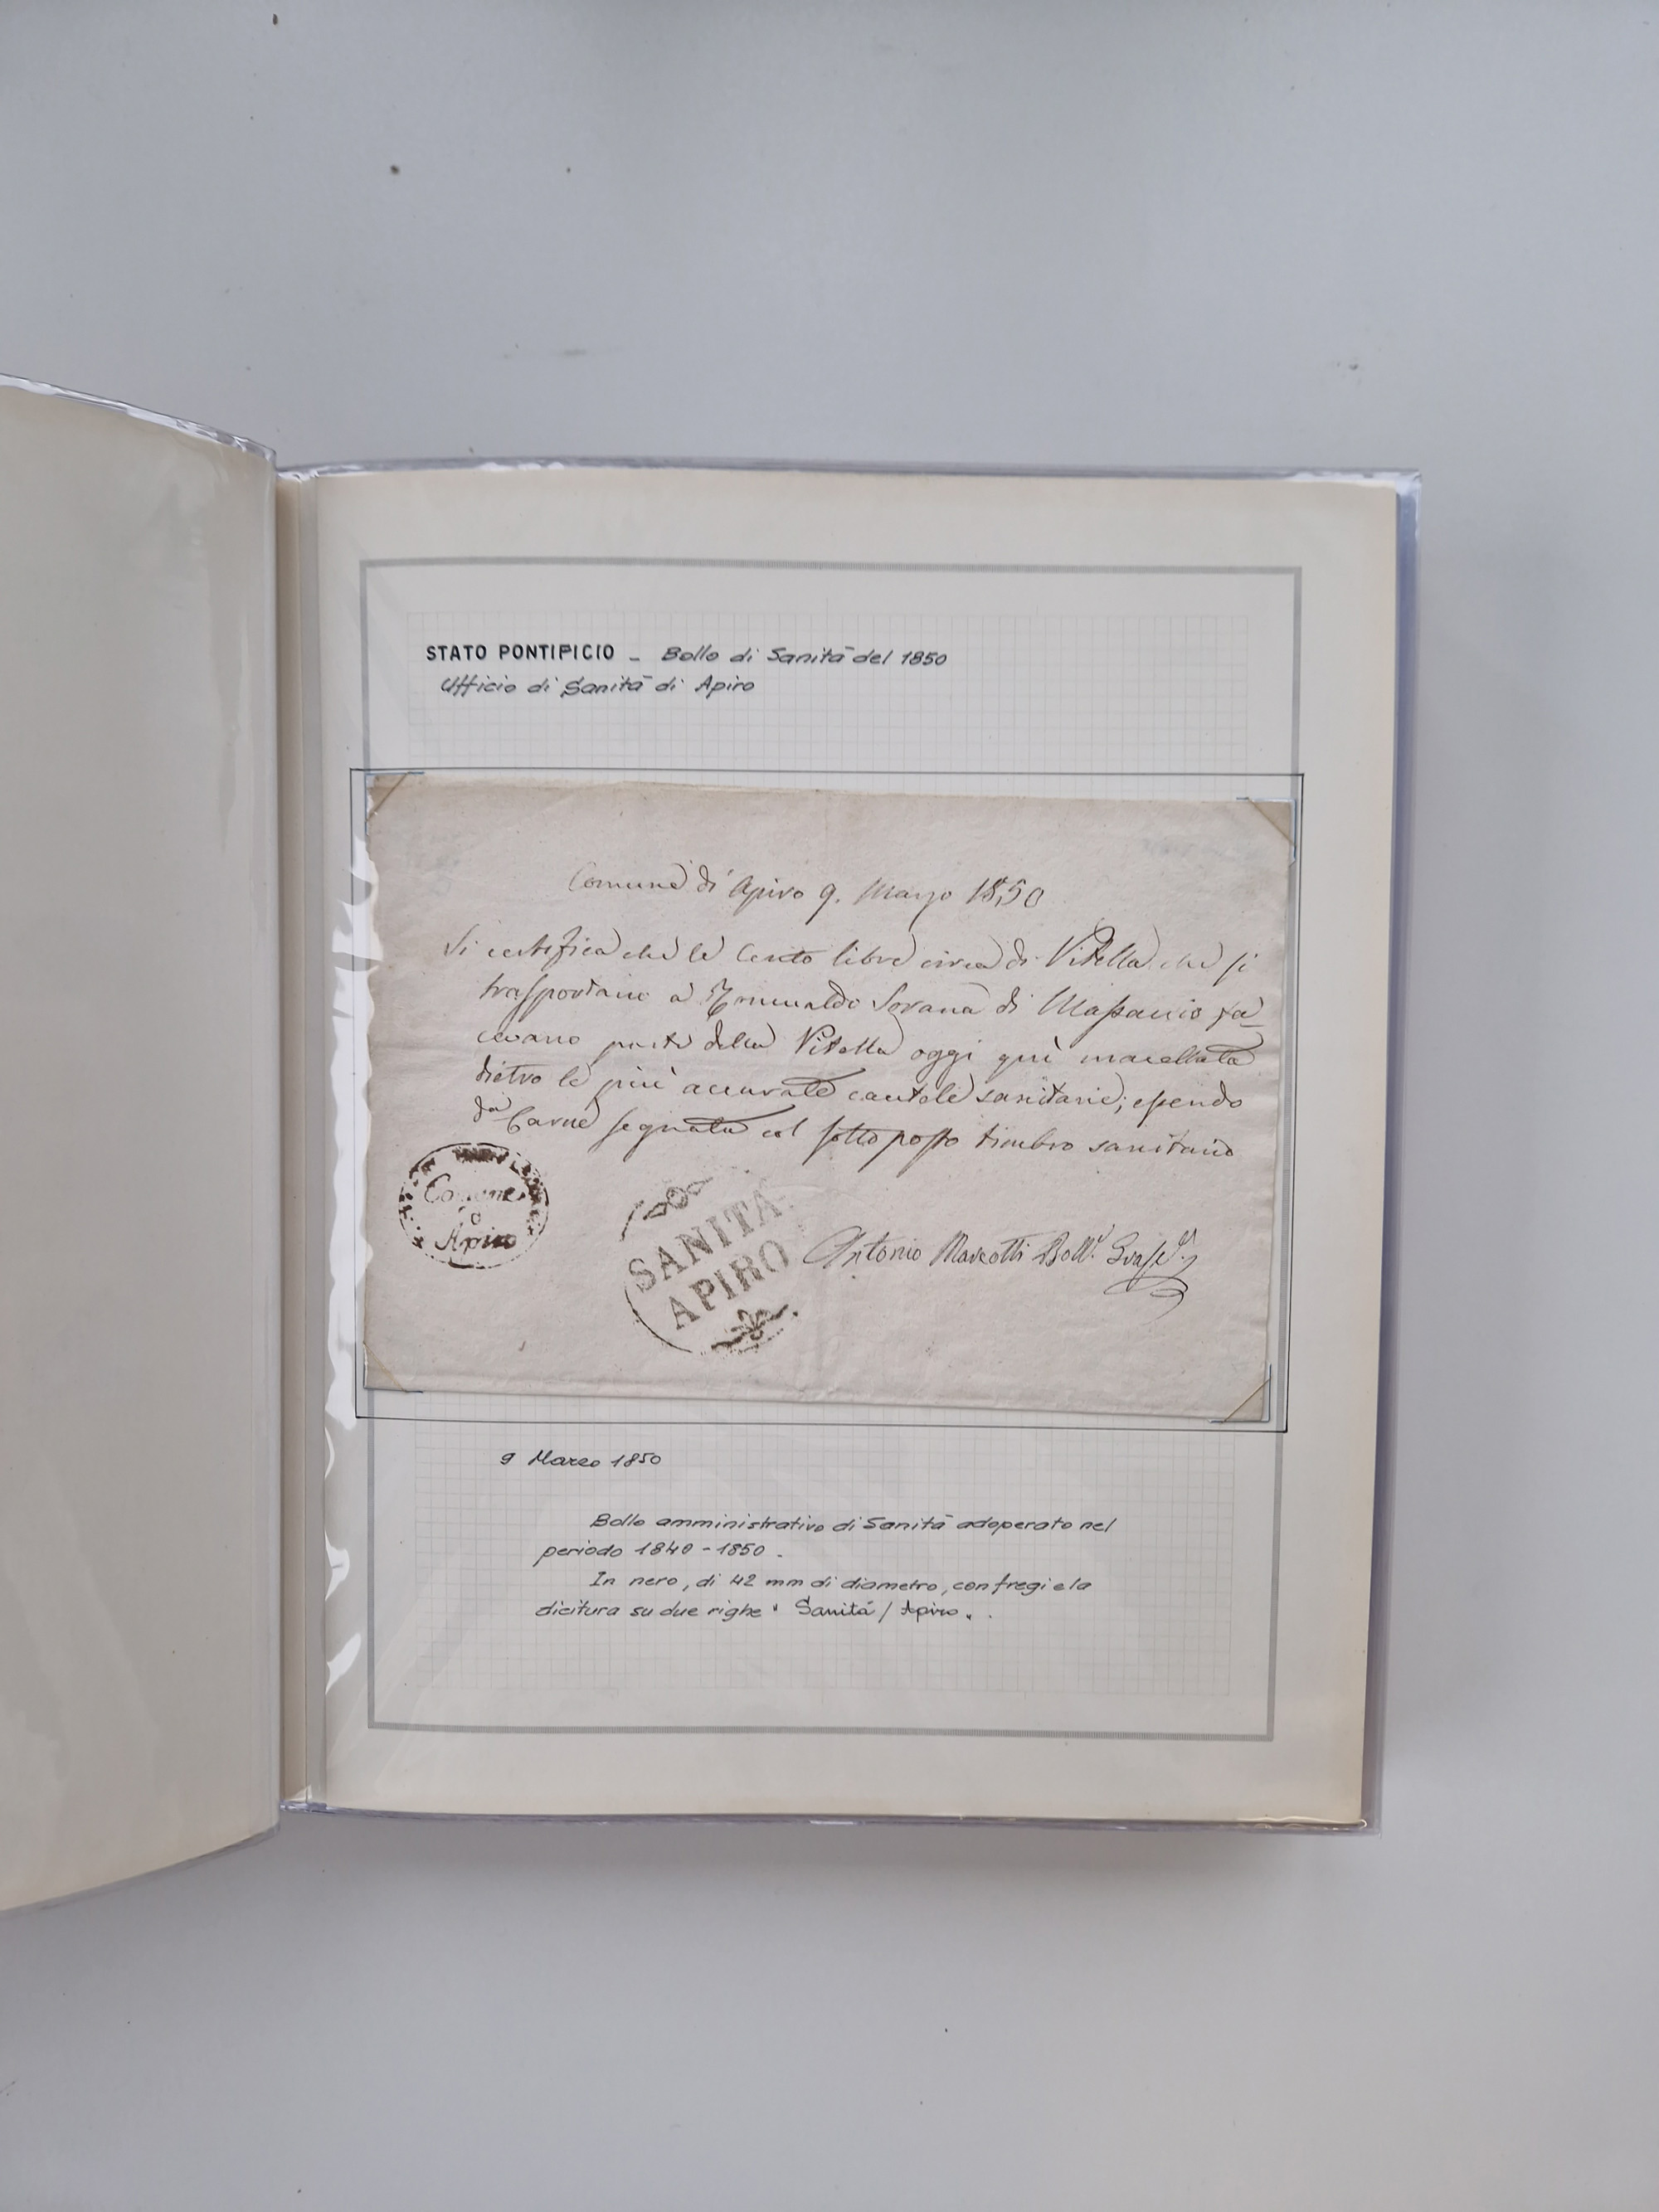 STATO PONTIFICIO - Bollo di Sanità del 1850
Ufficio di Sanità di Apiro
Comune di Apiro 9. Marzo 1850
Si certifica che le cento libre circa di Vitella che si
trasportano a Romualdo di Massaccio fa-
cevano parte della Vitella oggi quì macellata
dietro le più accurate cautele sanitarie; essendo
da Carne segnata col sottoposto timbro sanitario
Comune
Apiro
SANITÀ
APIRO
Antonio Marcotti
9 Marzo 1850
Bollo amministrativo di Sanità adoperato nel
periodo 1840-1850.
In nero, di 42 mm di diametro, con fregi e la
dicitura su due righe "Sanità / Apiro".